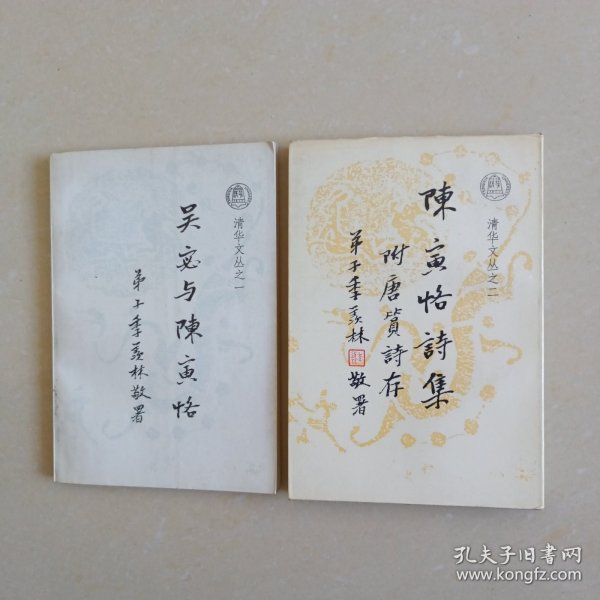 清华文丛之一
吴宓与陳寅恪
弟子季羡林敬署
清华文丛之二
陳寅恪詩集
附唐篔詩存
弟子季羡林敬署
孔夫子旧书网
www.kongfz.com